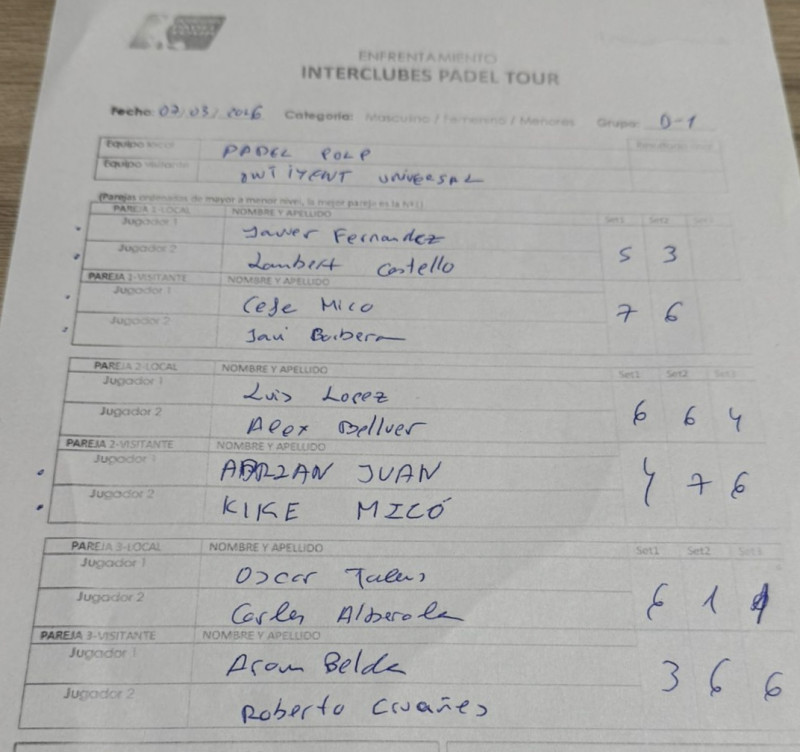 ENFRENTAMIENTO
INTERCLUBES PADEL TOUR
Fecho: 02/03/2026 Categoría: Masculino / Femenino / Menores Grupo: D-1
Equipo local PADEL POLP
Equipo visitante UNIVERSAL
(Parejas ordenados de mayor a menor nivel, la mejor pareja es la Nº1)
PAREJA 1-LOCAL NOMBRE Y APELLIDO Set1 Set2 Set3
Jugador 1 Javier Fernandez
Jugador 2 Lambert Costello 5 3
PAREJA 1-VISITANTE NOMBRE Y APELLIDO
Jugador 1 Cefe Mico 7 6
Jugador 2 Javi Barbera
PAREJA 2-LOCAL NOMBRE Y APELLIDO Set1 Set2 Set3
Jugador 1 Luis Lopez
Jugador 2 Alex Bellver 6 6 4
PAREJA 2-VISITANTE NOMBRE Y APELLIDO
Jugador 1 ADRIAN JUAN 4 7 6
Jugador 2 KIKE MICÓ
PAREJA 3-LOCAL NOMBRE Y APELLIDO Set1 Set2 Set3
Jugador 1 Oscar Talens
Jugador 2 Carles Alberola 6 1
PAREJA 3-VISITANTE NOMBRE Y APELLIDO
Jugador 1 Belda 3 6 6
Jugador 2 Roberto Cruañes